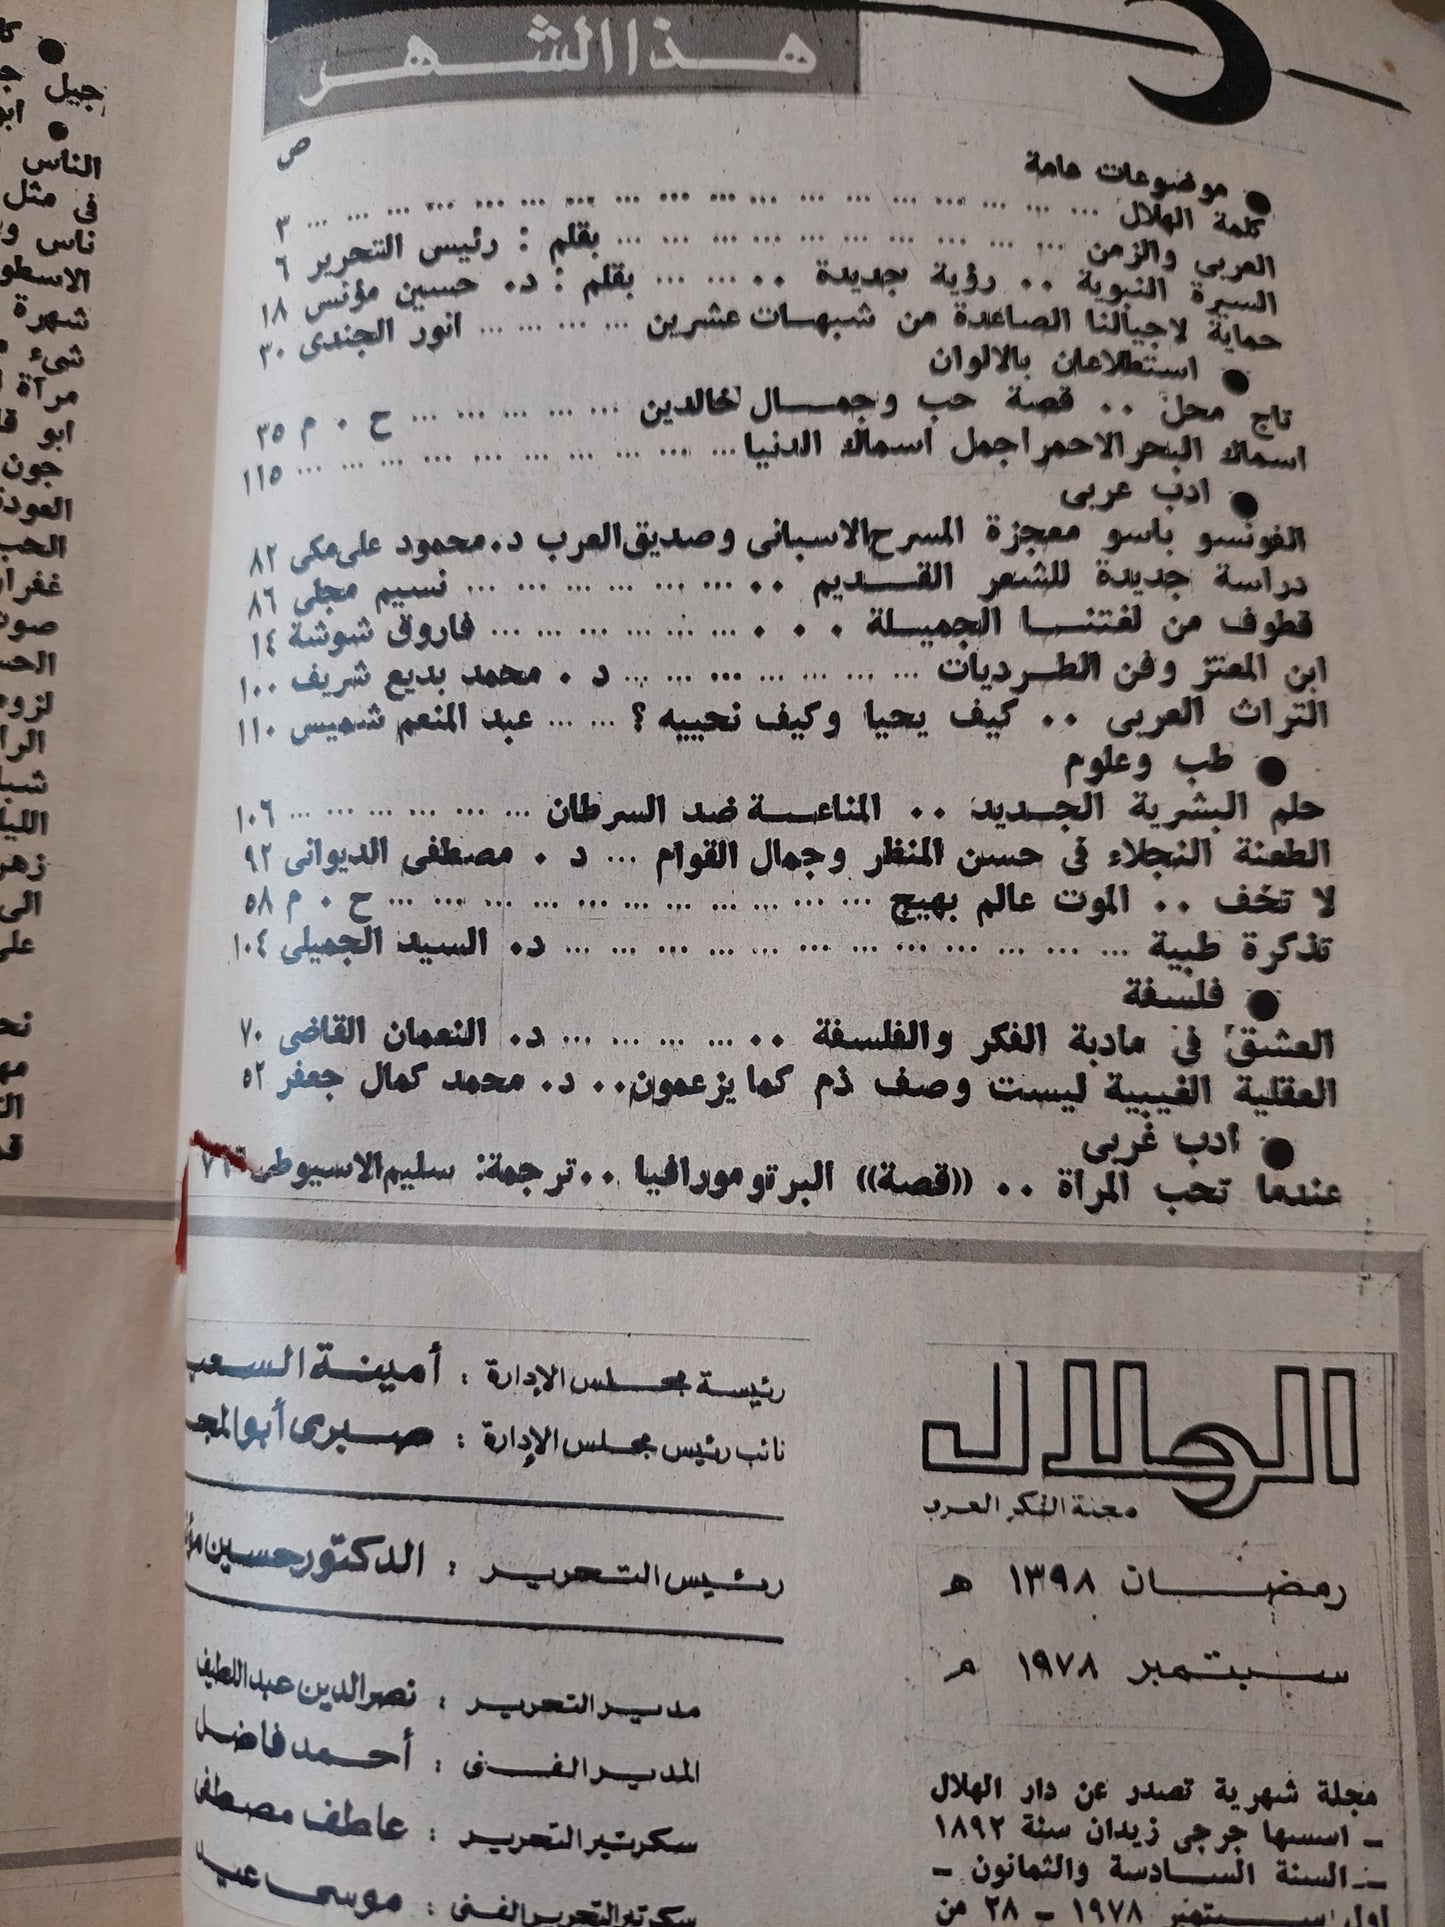 هذا الشهر
ص
● موضوعات هامة
كلمة الهلال ... ... ... ... ... ... ... ... ... ... ... ... ... ... ... ... ٣
العربي والزمن ... ... ... ... ... ... ... ... ... بقلم : رئيس التحرير ٦
السيرة النبوية .. رؤية جديدة .. ... ... ... بقلم : د. حسين مؤنس ١٨
حماية لاجيالنا الصاعدة من شبهات عشرين ... ... ... ... انور الجندى ٣٠
● استطلاعان بالالوان
تاج محل .. قصة حب وجمال لخالدين ... ... ... ... ... ح . م ٣٥
اسماك البحر الاحمر اجمل اسماك الدنيا ... ... ... ... ... ... ... ... ... ... ١١٥
● ادب عربى
الفونسو باسو معجزة المسرح الاسبانى وصديق العرب د. محمود على مكى ٨٢
دراسة جديدة للشعر القديم .. ... ... ... ... ... ... نسيم مجلى ٨٦
قطوف من لغتنا الجميلة . . . ... ... ... ... ... ... فاروق شوشة ١٤
ابن المعتز وفن الطرديات ... ... ... ... ... ... ... د . محمد بديع شريف ١٠٠
التراث العربى .. كيف يحيا وكيف نحييه ؟ ... ... عبد المنعم شميس ١١٠
● طب وعلوم
حلم البشرية الجديد .. المناعة ضد السرطان ... ... ... ... ... ... ... ١٠٦
الطعنة النجلاء فى حسن المنظر وجمال القوام ... د . مصطفى الديوانى ٩٢
لا تخف .. الموت عالم بهيج ... ... ... ... ... ... ... ... ... ... ... ح . م ٥٨
تذكرة طبية ... ... ... ... ... ... ... ... ... ... ... ... د. السيد الجميلى ١٠٤
● فلسفة
العشق فى مادبة الفكر والفلسفة .. ... ... ... ... ... د. النعمان القاضى ٧٠
العقلية الغيبية ليست وصف ذم كما يزعمون .. د. محمد كمال جعفر ٥٢
● ادب غربى
عندما تحب المرأة .. ((قصة)) البرتو مورافيا .. ترجمة: سليم الاسيوطى
الهلال
مجلة الفكر العربى
رمضان ١٣٩٨ هـ
سبتمبر ١٩٧٨ م
مجلة شهرية تصدر عن دار الهلال
ـ اسسها جرجى زيدان سنة ١٨٩٢
ـ السنة السادسة والثمانون ـ
اول سبتمبر ١٩٧٨ ـ ٢٨ من
رئيسة مجلس الإدارة : أمينة
نائب رئيس مجلس الإدارة : صبرى
رئيس التحرير : الدكتور حسين
مدير التحرير : نصر الدين عبد اللطيف
المدير الفنى : أحمد فاضل
سكرتير التحرير : عاطف مصطفى
سكرتير التحرير الفنى : موسى عيد
جيل
الناس
فى مثل
ناس
شهرة
شىء
مرآة
ابو
جون